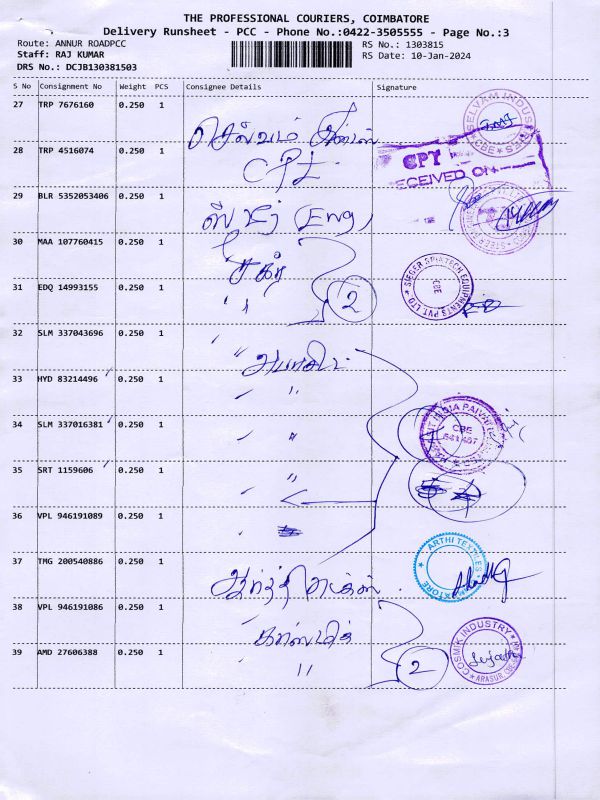 THE PROFESSIONAL COURIERS, COIMBATORE
Delivery Runsheet - PCC - Phone No.:0422-3505555 - Page No.:3
Route: ANNUR ROADPCC
RS No.: 1303815
Staff: RAJ KUMAR
RS Date: 10-Jan-2024
DRS No.: DCJB130381503
S No Consignment No Weight PCS Consignee Details Signature
27 TRP 7676160 0.250 1
செல்வம்
SELVAM INDUS
CBE
28 TRP 4516074 0.250 1
CPT
RECEIVED ON
29 BLR 5352053406 0.250 1
(Eng)
30 MAA 107760415 0.250 1
31 EDQ 14993155 0.250 1
" 2
SIEGER SPINTECH EQUIPMENTS PVT. LTD
CBE
32 SLM 337043696 0.250 1
"
33 HYD 83214496 0.250 1
"
34 SLM 337016381 0.250 1
"
INDIA
CBE
641 407
35 SRT 1159606 0.250 1
"
36 VPL 946191089 0.250 1
"
37 TMG 200540886 0.250 1
ஆர்த்தி
ARTHI TEXTILES
38 VPL 946191086 0.250 1
காஸ்மிக்
COSMIK INDUSTRY
ARASUR
39 AMD 27606388 0.250 1
" 2